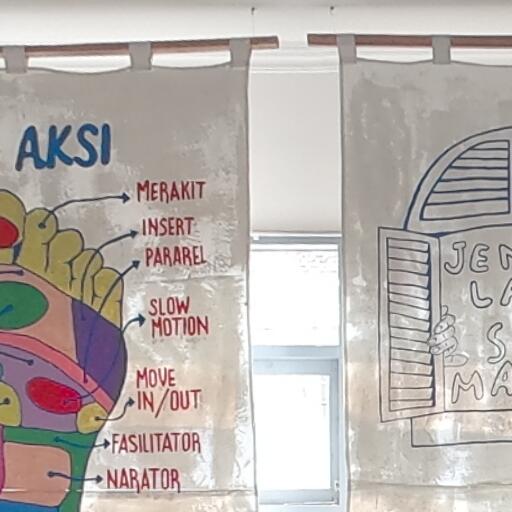 AKSI
MERAKIT
INSERT
PARAREL
SLOW
MOTION
MOVE
IN/OUT
FASILITATOR
NARATOR